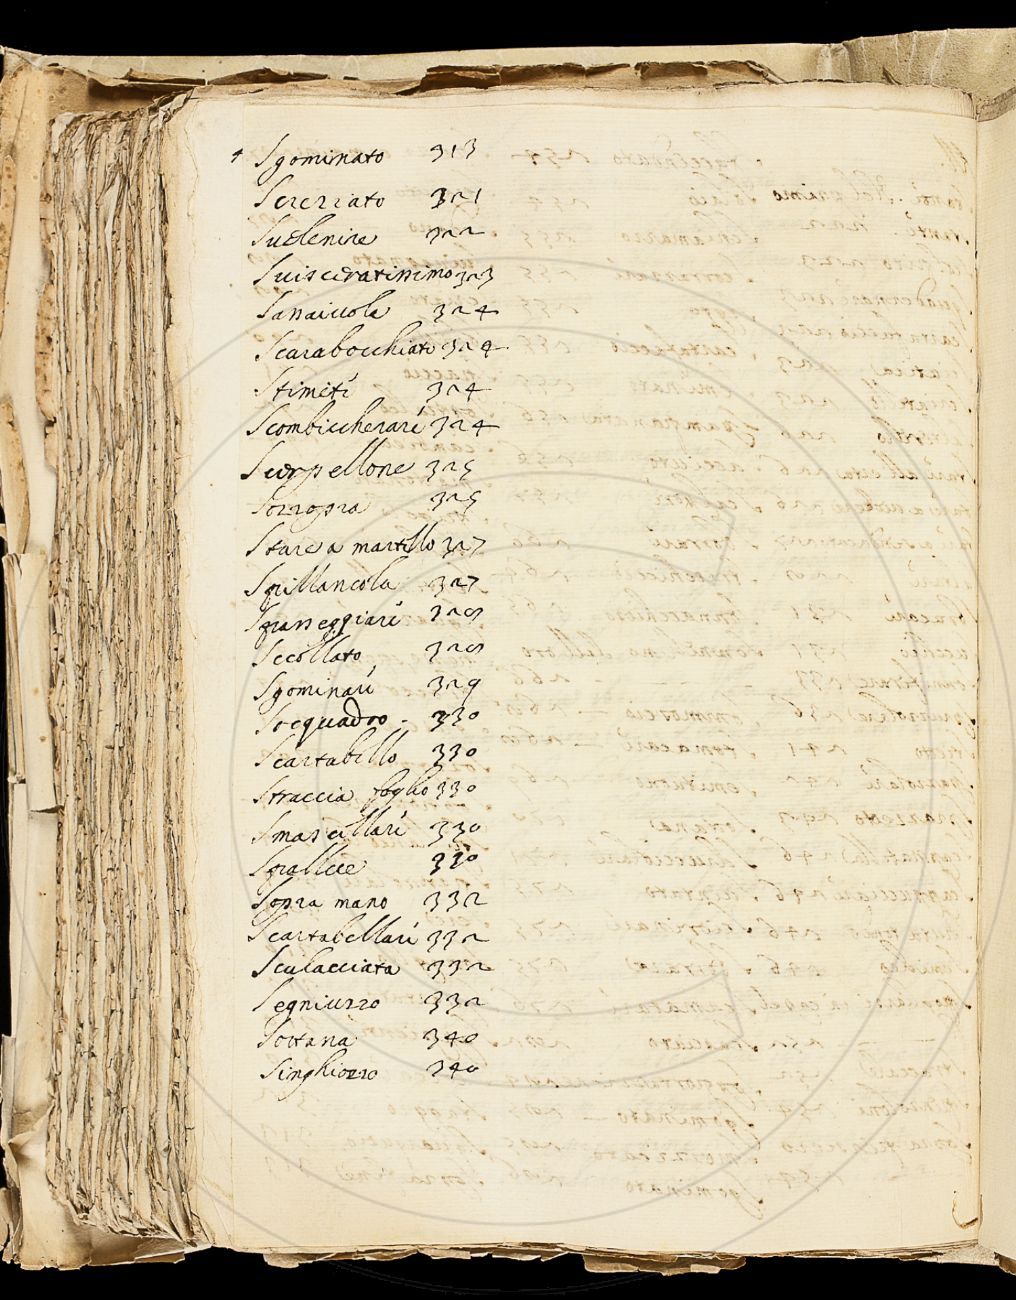 Sgominato 313
Screziato 321
Suelenire 322
Suisceratissimo 323
Sanaiuola 324
Scarabocchiato 324
Stimite 324
Scombiccherare 324
Scerpellone 325
Sorropra 325
Stare a martello 327
Spillancola 327
Spasseggiare 328
Scollato 328
Sgominare 329
Soqquadro - 330
Scartabello 330
Straccia foglio 330
Smascellare 330
Spallee 330
Sopra mano 332
Scartabellare 332
Sculacciata 332
Segniuzzo 332
Sottana 340
Singhiozzo 340